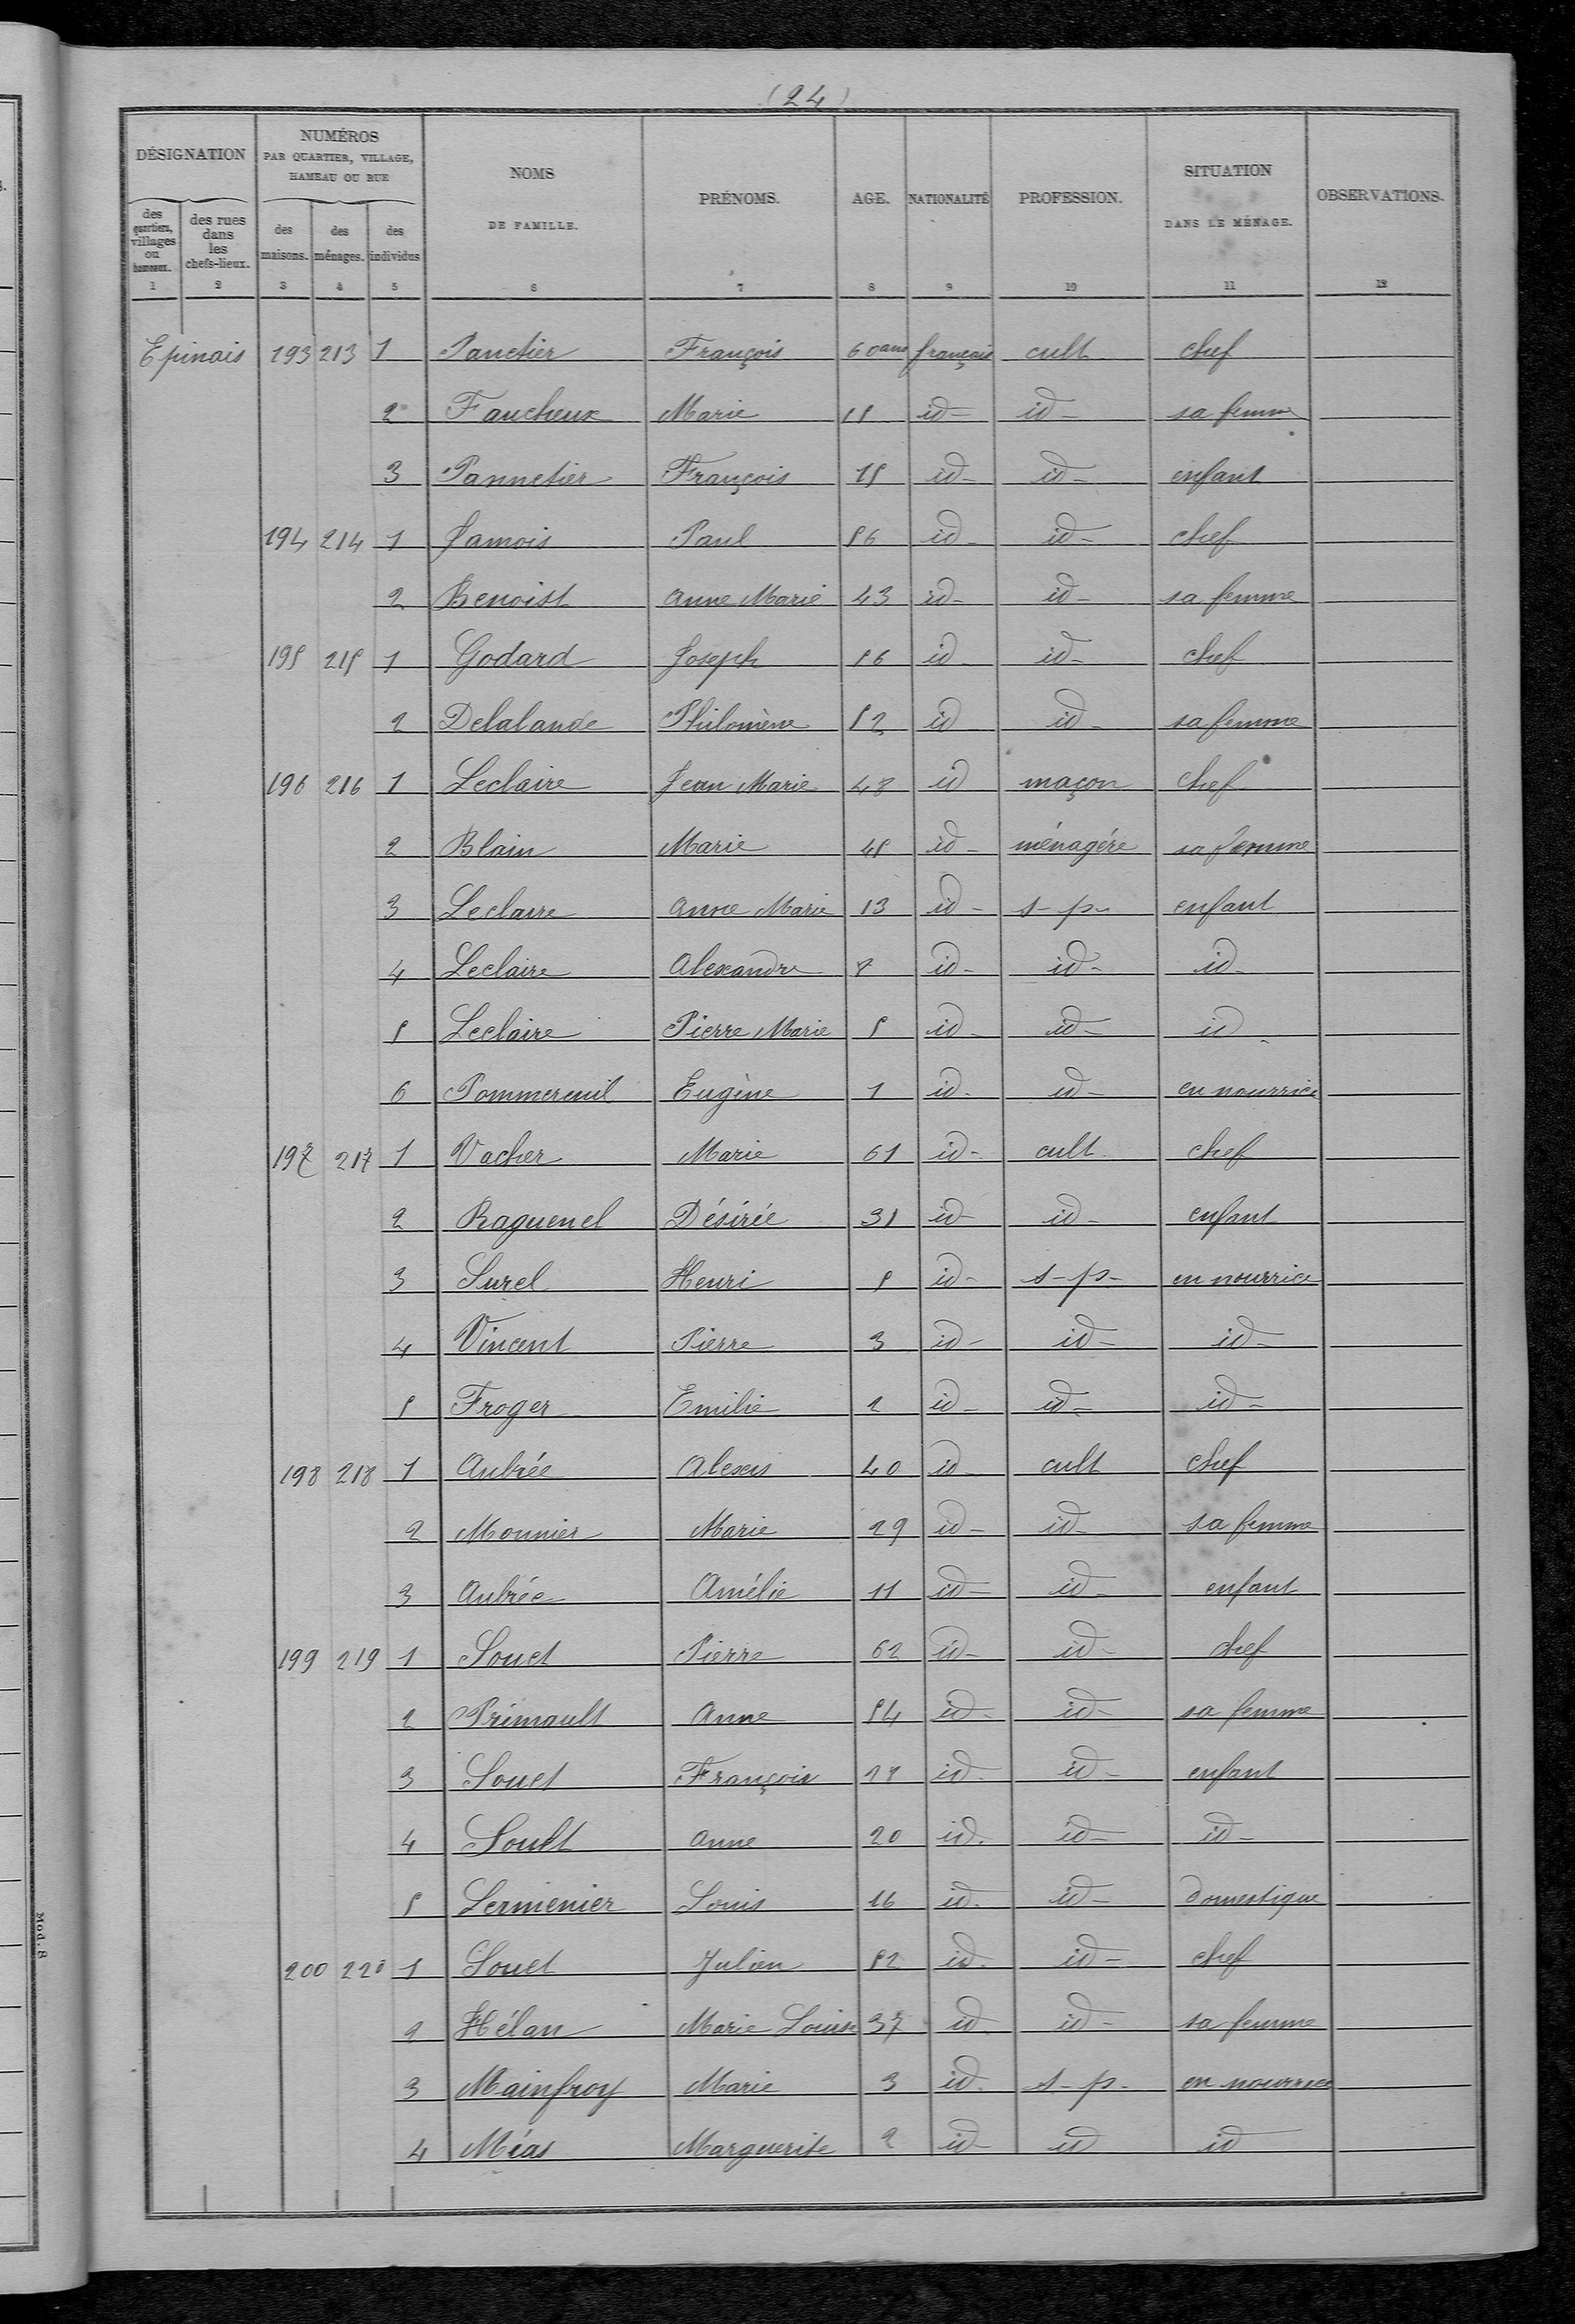 (24)
DÉSIGNATION
NUMÉROS
PAR QUARTIER, VILLAGE,
HAMEAU OU RUE
NOMS
DE FAMILLE.
PRÉNOMS.
AGE.
NATIONALITÉ
PROFESSION.
SITUATION
DANS LE MÉNAGE.
OBSERVATIONS.
des quartiers, villages ou hameaux.
des rues dans les chefs-lieux.
des maisons.
des ménages.
des individus
1 2 3 4 5 6 7 8 9 10 11 12
Epinais 193 213 1 Panetier François 60 ans français cult chef
2 Faucheux Marie 55 id- id- sa femme
3 Pannetier François 15 id- id- enfant
194 214 1 Jamois Paul 56 id- id- chef
2 Benoist Anne Marie 43 id- id- sa femme
195 215 1 Godard Joseph 56 id id- chef
2 Delalande Philomène 52 id id- sa femme
196 216 1 Leclaire Jean Marie 48 id maçon chef
2 Blain Marie 45 id- ménagère sa femme
3 Leclaire Anne Marie 13 id- s-p- enfant
4 Leclaire Alexandre 8 id- id- id-
5 Leclaire Pierre Marie 5 id- id- id-
6 Pommereuil Eugène 1 id- id- en nourrice
197 217 1 Vacher Marie 61 id- cult chef
2 Raguenel Désirée 31 id- id- enfant
3 Surel Henri 5 id- s-p- en nourrice
4 Vincent Pierre 3 id- id- id-
5 Froger Emilie 2 id- id- id-
198 218 1 Aubrée Alexis 40 id- cult chef
2 Monnier Marie 29 id- id- sa femme
3 Aubrée Amélie 11 id- id- enfant
199 219 1 Souet Pierre 62 id- id- chef
2 Primault Anne 54 id- id- sa femme
3 Souet François 28 id- id- enfant
4 Soult Anne 20 id. id- id-
5 Lermenier Louis 16 id. id- domestique
200 220 1 Souet Julien 52 id. id- chef
2 Hélan Marie Louise 37 id. id- sa femme
3 Mainfroy Marie 3 id. s-p- en nourrice
4 Méas Marguerite 2 id- id id
Mod. 8